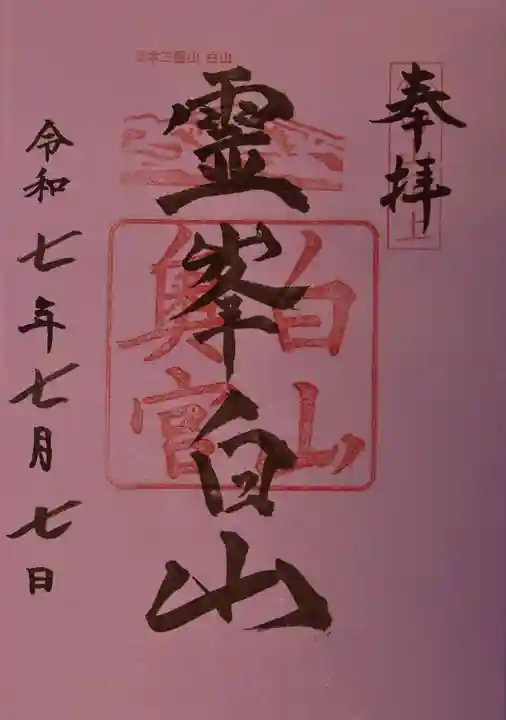 奉拝
日本三霊山 白山
霊峯白山
白山
奥宮
令和七年七月七日